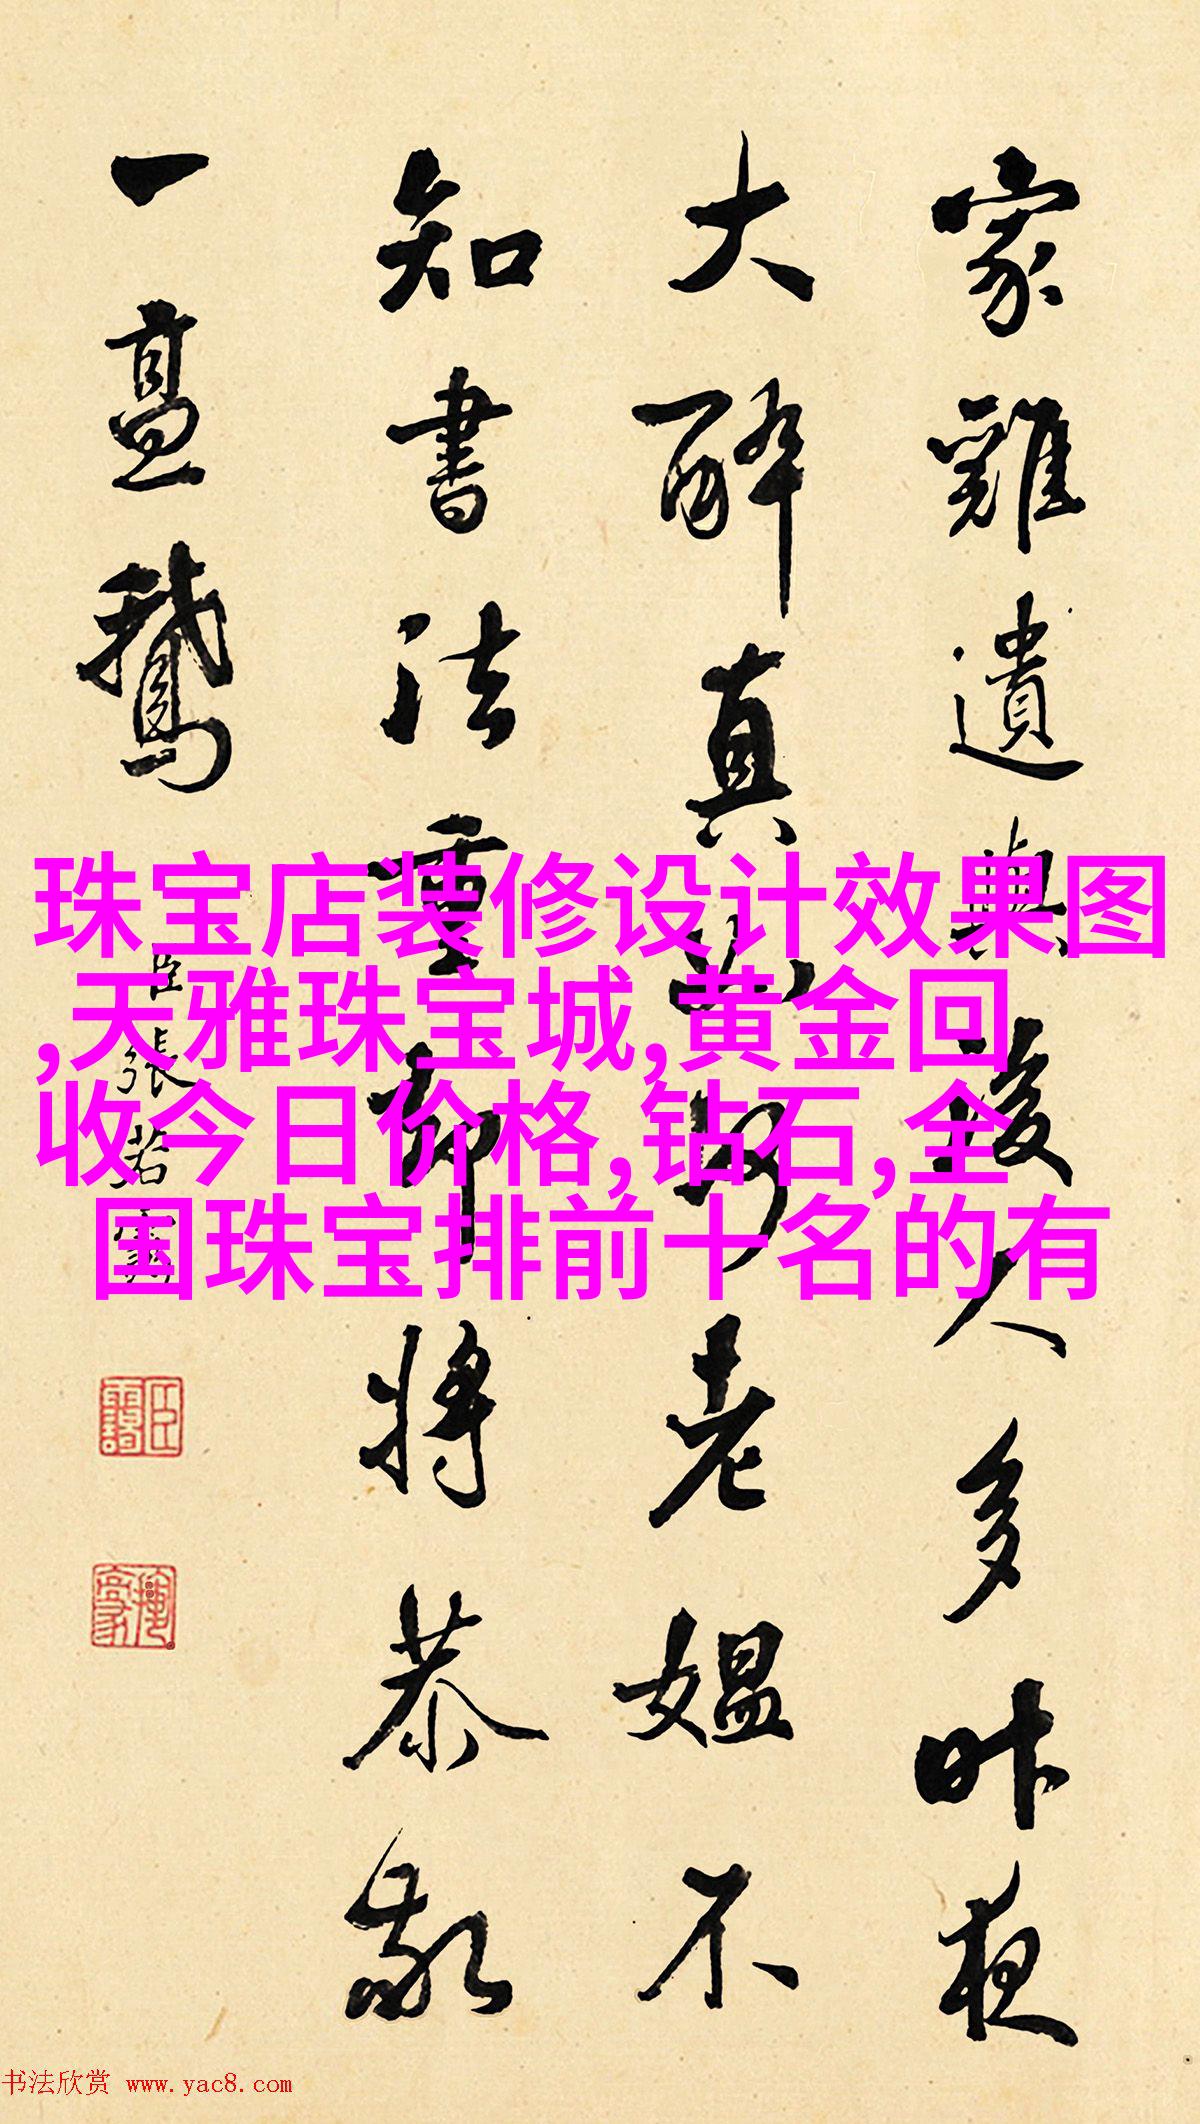 家雞遺與後人多昨夜
大醉真如
老媼不
知書法重
將恭敬
一盡鵝
臣張若靄
珠宝店装修设计效果图
,天雅珠宝城,黄金回
收今日价格,钻石,全
国珠宝排前十名的有
书法欣赏 www.yac8.com